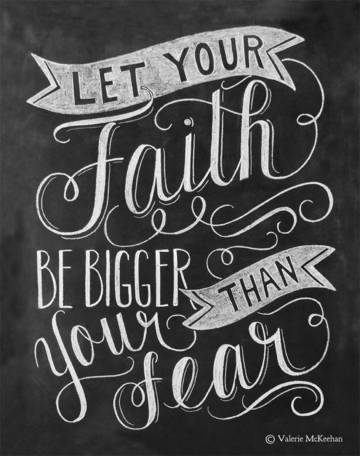 LET YOUR
Faith
BE BIGGER
THAN
Your
Fear
© Valerie McKeehan